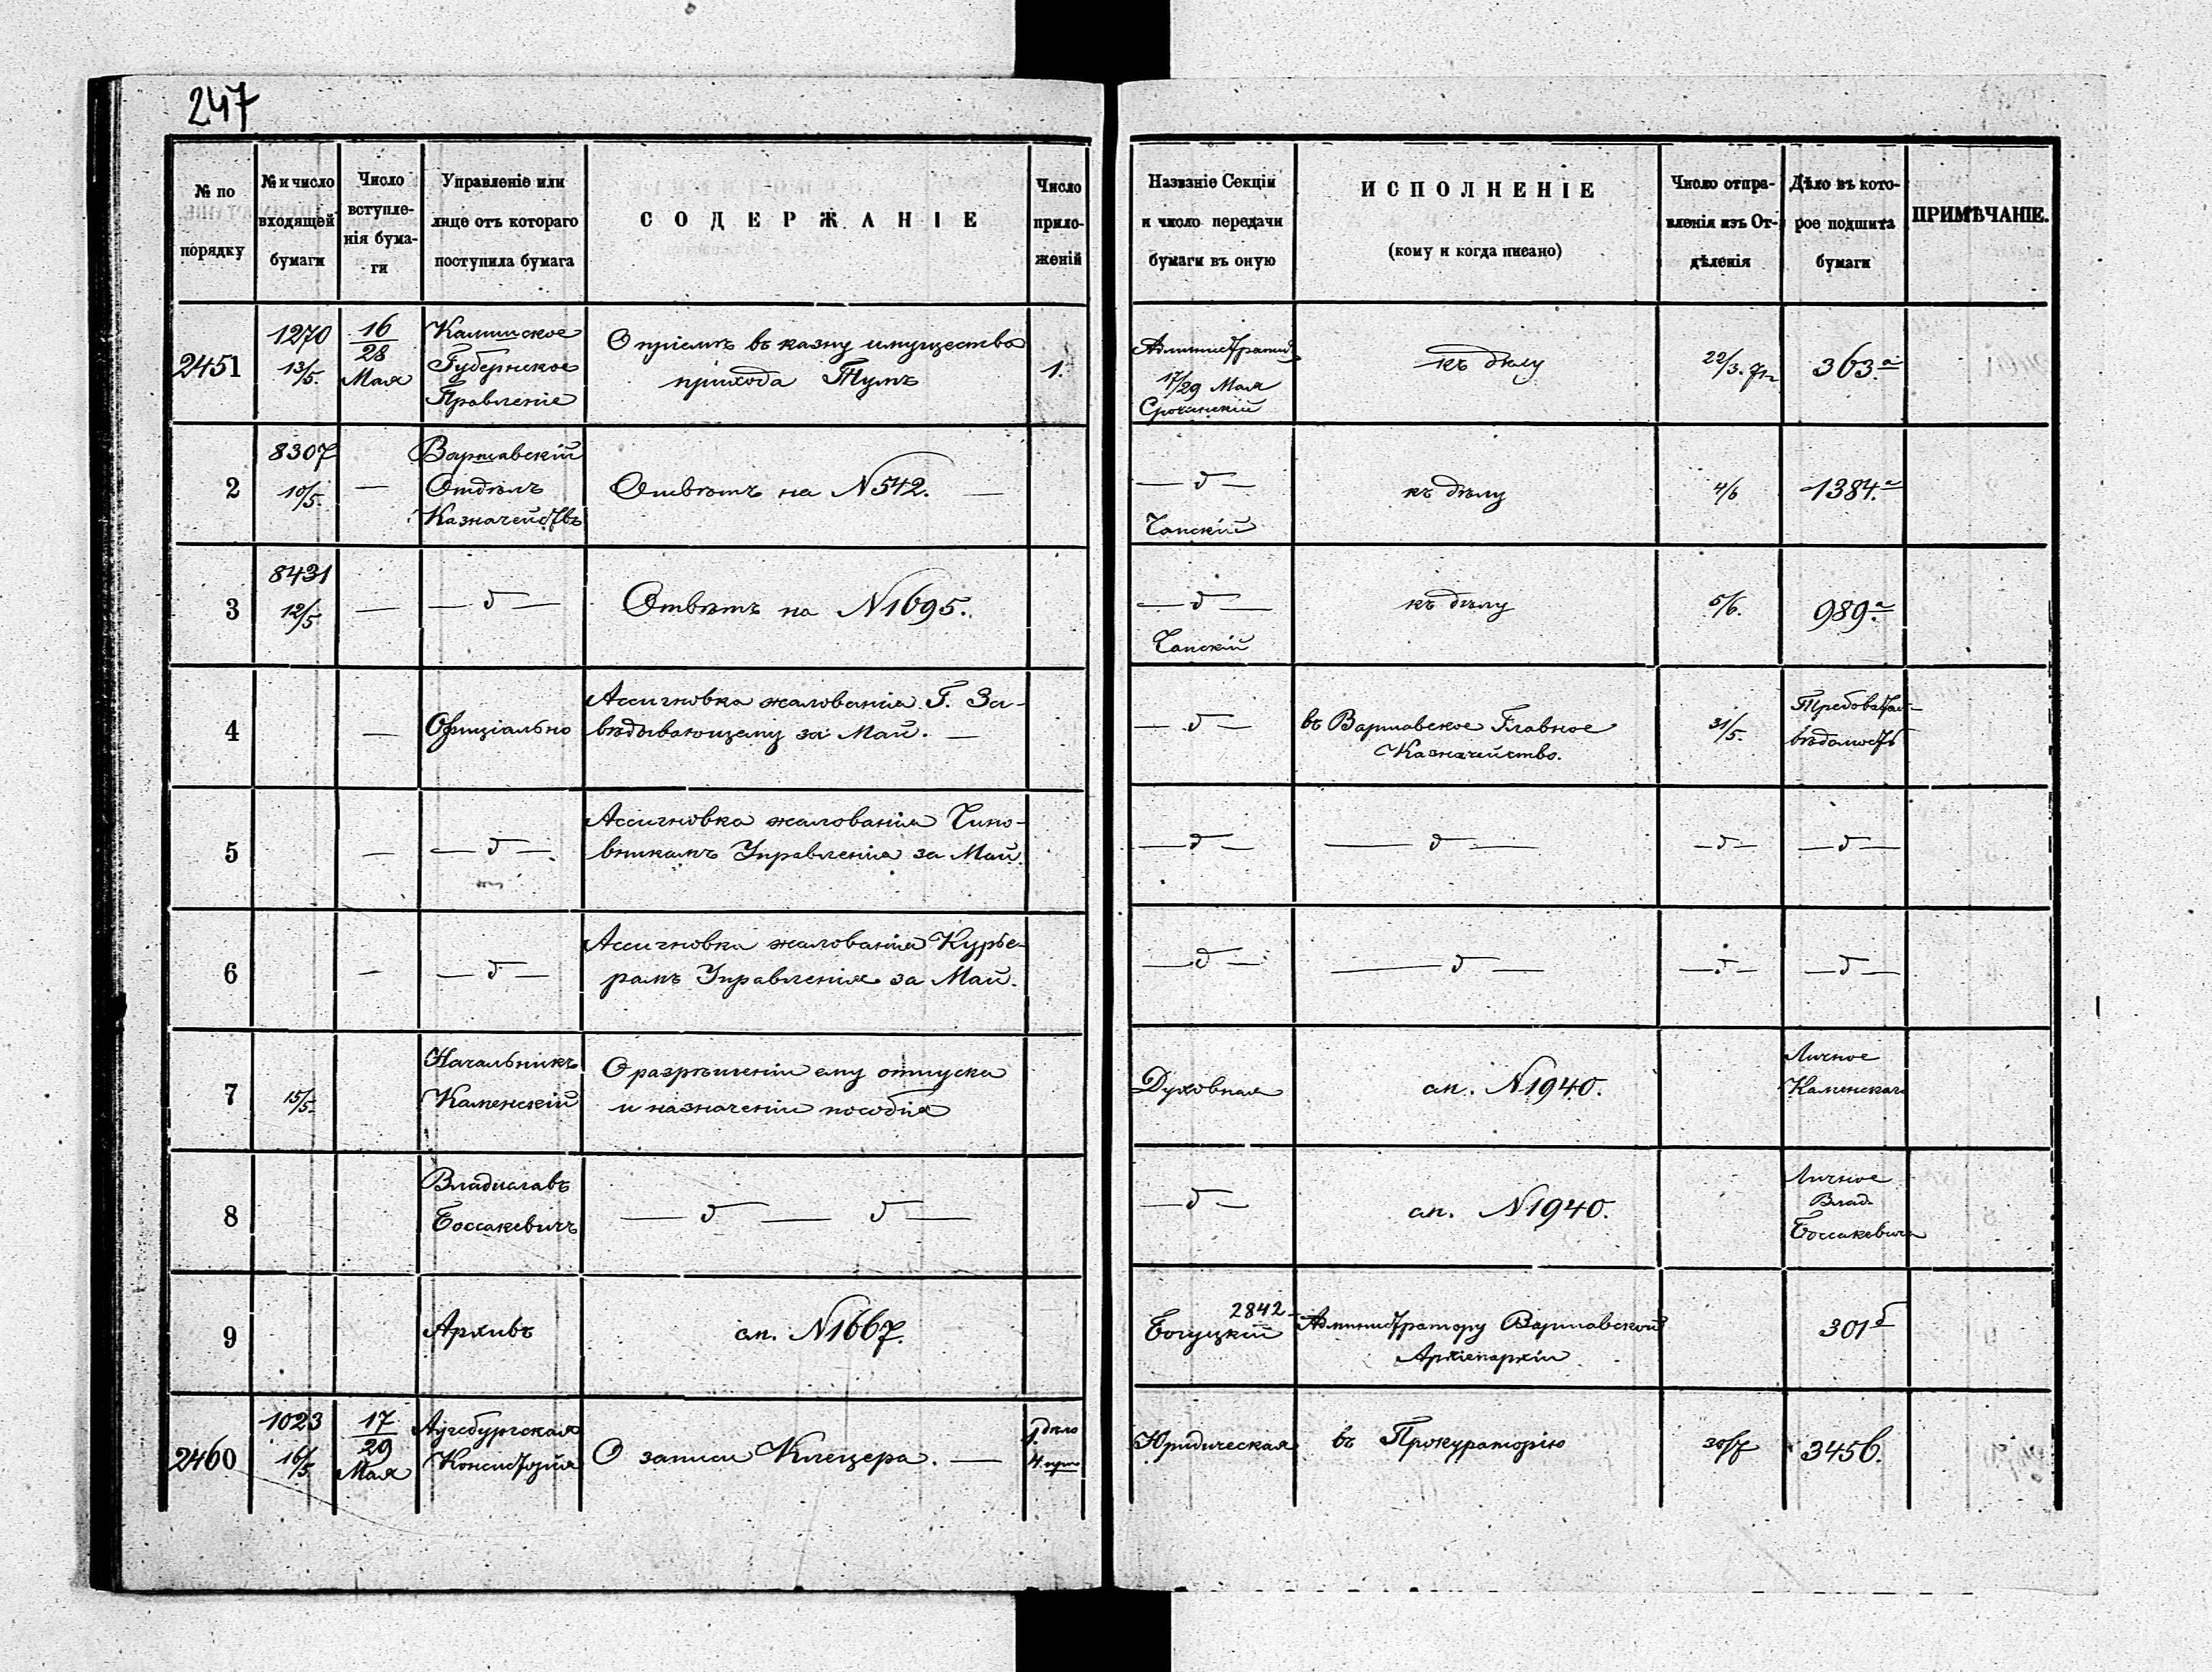 247
№ по порядку
№ и число входящей бумаги
Число вступле-нія бума-ги
Управленіе или лице отъ котораго поступила бумага
СОДЕРЖАНІЕ
Число прило-женій
Названіе Секціи и число передачи бумаги въ оную
ИСПОЛНЕНІЕ
(кому и когда писано)
Число отпра-вленія изъ От-дѣленія
Дѣло въ кото-рое подшита бумаги
ПРИМѢЧАНІЕ.
2451
1270
13/5.
16/28
Мая
Калишское
Губернское
Правленіе
О пріемѣ въ казну имущества
прихода Тумъ
1.
17/29 Мая
къ дѣлу
22/3.
363.а
2
8307
10/5.
—
Варшавскій
Отдѣлъ
Казначействъ
Отвѣтъ на N542. —
— д —
Чапскій
къ дѣлу
4/6
1384.а
3
8431
12/5
—
— д —
Отвѣтъ на N1695.
— д —
Чапскій
къ дѣлу
5/6.
989.а
4
—
Офиціально
Ассигновка жалованія Г. За-
вѣдывающему за Май. —
— д —
въ Варшавское Главное
Казначейство.
31/5.
вѣдомость
5
—
— д —.
Ассигновка жалованія Чино-
вникамъ Управленія за Май.
— д —
— д —
— д —
— д —
6
—
— д —
Ассигновка жалованія Курье-
рамъ Управленія за Май.
— д —
— д —
— д —
— д —
7
15/5.
Начальникъ
Каменскій
О разрѣшеніи ему отпуска
и назначеніи пособія
Духовная
см. N1940.
Личное
Каменскаго
8
Владиславъ
Боссакевичъ
— д — д —
— д —
см. N1940.
Личное
Влад.
Боссакевича
9
Архивъ
см. N1667.
2842
Богуцкій
Администратору Варшавской
Архіепархіи
301б
2460
1023
16/5
17/29
Мая
Аугсбургская
Консисторія
О записи Клецера. —
1. дѣло
4.
Юридическая
въ Прокураторію
30/7
345б.